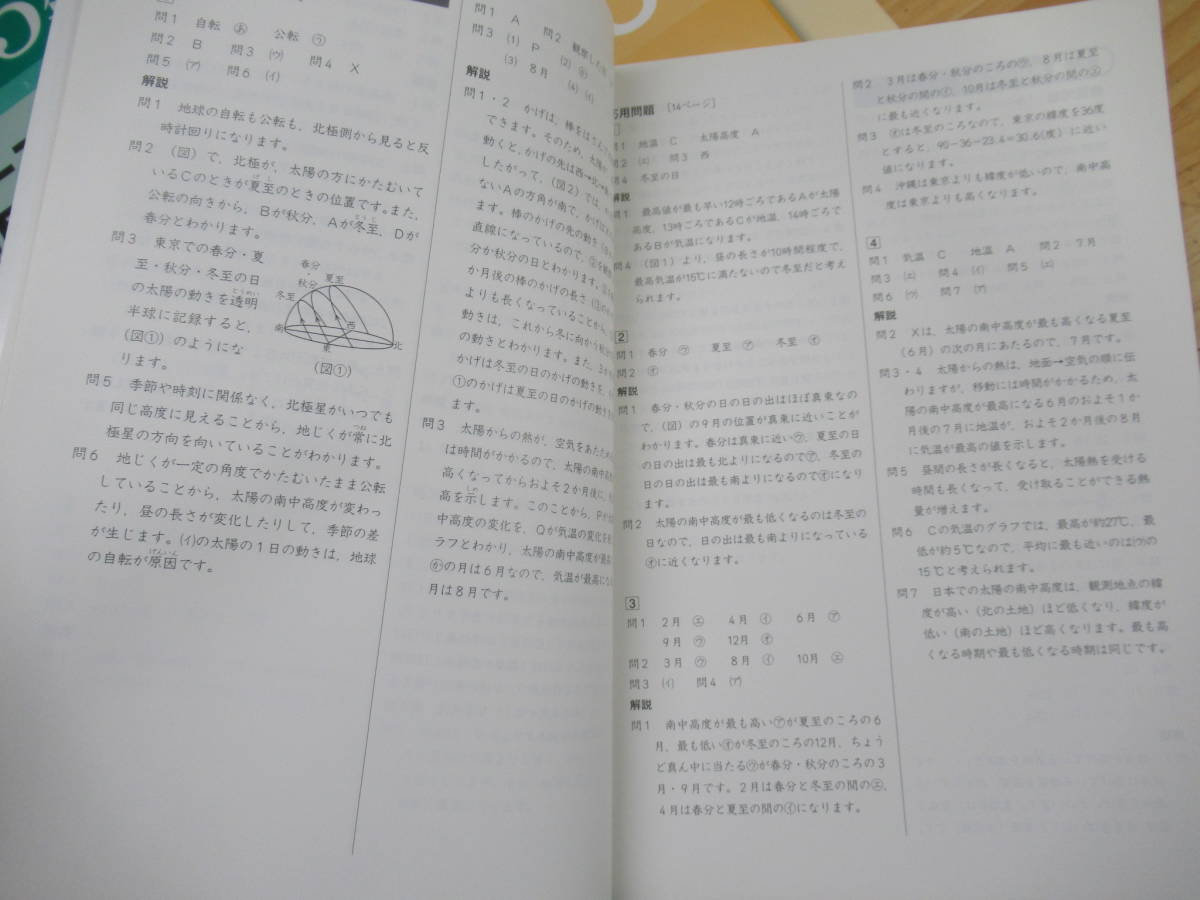 問1 自転 ㋐ 公転 ㋒
問2 B 問3 (ウ) 問4 X
問5 (ア) 問6 (イ)
解説
問1 地球の自転も公転も，北極側から見ると反
時計回りになります。
問2 (図)で，北極が，太陽の方にかたむいて
いるCのときが夏至のときの位置です。また，
公転の向きから，Bが秋分，Aが冬至，Dが
春分とわかります。
問3 東京での春分・夏
至・秋分・冬至の日
の太陽の動きを透明
半球に記録すると，
(図①)のようにな
ります。
春分・
秋分 夏至
冬至
南 西 北
東
(図①)
問5 季節や時刻に関係なく，北極星がいつでも
同じ高度に見えることから，地じくが常に北
極星の方向を向いていることがわかります。
問6 地じくが一定の角度でかたむいたまま公転
していることから，太陽の南中高度が変わっ
たり，昼の長さが変化したりして，季節の差
が生じます。(イ)の太陽の1日の動きは，地球
の自転が原因です。
問1 A 問2 観察した
問3 (1) P (2)
(3) 8月 (4) (イ)
解説
問1・2 かげは，棒をはさんで
できます。そのため，太陽が
動くと，かげの先は西→北→
したがって，(図2)では，
ないAの方角が南で，かげは
ます。棒のかげの先の動き
直線になっているので，
分か秋分の日とわかります。
か月後の棒のかげの長さ
よりも長くなっていることから，
動きは，これから冬に向かう
の動きとわかります。また，3か
かげは冬至の日のかげの動きを，
①のかげは夏至の日のかげの動き
ます。
問3 太陽からの熱が，空気をあたため
は時間がかかるので，太陽の南中高
高くなってからおよそ2か月後に，
高を示します。このことから，Pが
中高度の変化を，Qが気温の変化を
ラフとわかり，太陽の南中高度が最
㋕の月は6月なので，気温が最高にな
月は8月です。
応用問題 [14ページ]
問1 地温 C 太陽高度 A
問2 (エ) 問3 西
問4 冬至の日
解説
問1 最高値が最も早い12時ごろであるAが太陽
高度，13時ごろであるCが地温，14時ごろで
あるBが気温になります。
問4 (図1)より，昼の長さが10時間程度で，
最高気温が15℃に満たないので冬至だと考え
られます。
2
問1 春分 ㋒ 夏至 ㋐ 冬至 ㋔
問2 ㋔
解説
問1 春分・秋分の日の日の出はほぼ真東なの
で，(図)の9月の位置が真東に近いことが
わかります。春分は真東に近い㋒，夏至の日
の日の出は最も北よりになるので㋐，冬至の
日の日の出は最も南よりになるので㋔になり
ます。
問2 太陽の南中高度が最も低くなるのは冬至の
日なので，日の出は最も南よりになっている
㋔に近くなります。
3
問1 2月 ㋓ 4月 ㋑ 6月 ㋐
9月 ㋒ 12月 ㋔
問2 3月 ㋒ 8月 ㋑ 10月 ㋓
問3 (イ) 問4 (ア)
解説
問1 南中高度が最も高い㋐が夏至のころの6
月，最も低い㋔が冬至のころの12月，ちょう
ど真ん中に当たる㋒が春分・秋分のころの3
月・9月です。2月は春分と冬至の間の㋓，
4月は春分と夏至の間の㋑になります。
問2 3月は春分・秋分のころの㋒，8月は夏至
と秋分の間の㋑，10月は冬至と秋分の間の㋓
に最も近くなります。
問3 ㋔は冬至のころなので，東京の緯度を36度
とすると，90−36−23.4=30.6(度)に近い
値になります。
問4 沖縄は東京よりも緯度が低いので，南中高
度は東京よりも高くなります。
4
問1 気温 C 地温 A 問2 7月
問3 (エ) 問4 (イ) 問5 (エ)
問6 (ウ) 問7 (ア)
解説
問2 Xは，太陽の南中高度が最も高くなる夏至
(6月)の次の月にあたるので，7月です。
問3・4 太陽からの熱は，地面→空気の順に伝
わりますが，移動には時間がかかるため，太
陽の南中高度が最高になる6月のおよそ1か
月後の7月に地温が，およそ2か月後の8月
に気温が最高の値を示します。
問5 昼間の長さが長くなると，太陽熱を受ける
時間も長くなって，受け取ることができる熱
量が増えます。
問6 Cの気温のグラフでは，最高が約27℃，最
低が約5℃なので，平均に最も近いのは(ウ)の
15℃と考えられます。
問7 日本での太陽の南中高度は，観測地点の緯
度が高い(北の土地)ほど低くなり，緯度が
低い(南の土地)ほど高くなります。最も高
くなる時期や最も低くなる時期は同じです。